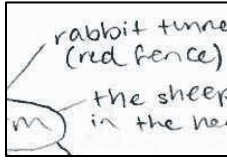 rabbit tunne
(red fence)
the sheep
m in the he